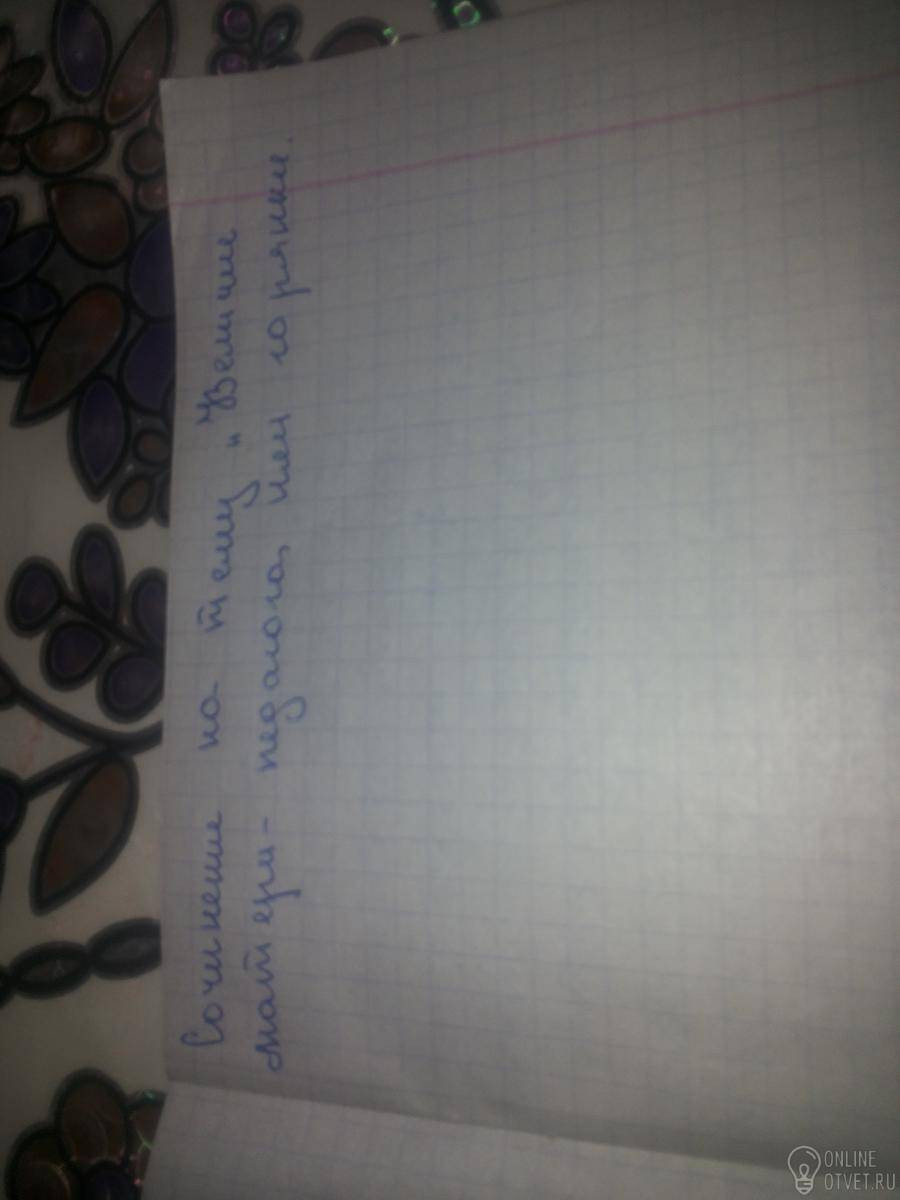 Сочинение на тему „Величие
матери - педагога, горянки.
ONLINE
OTVET.RU